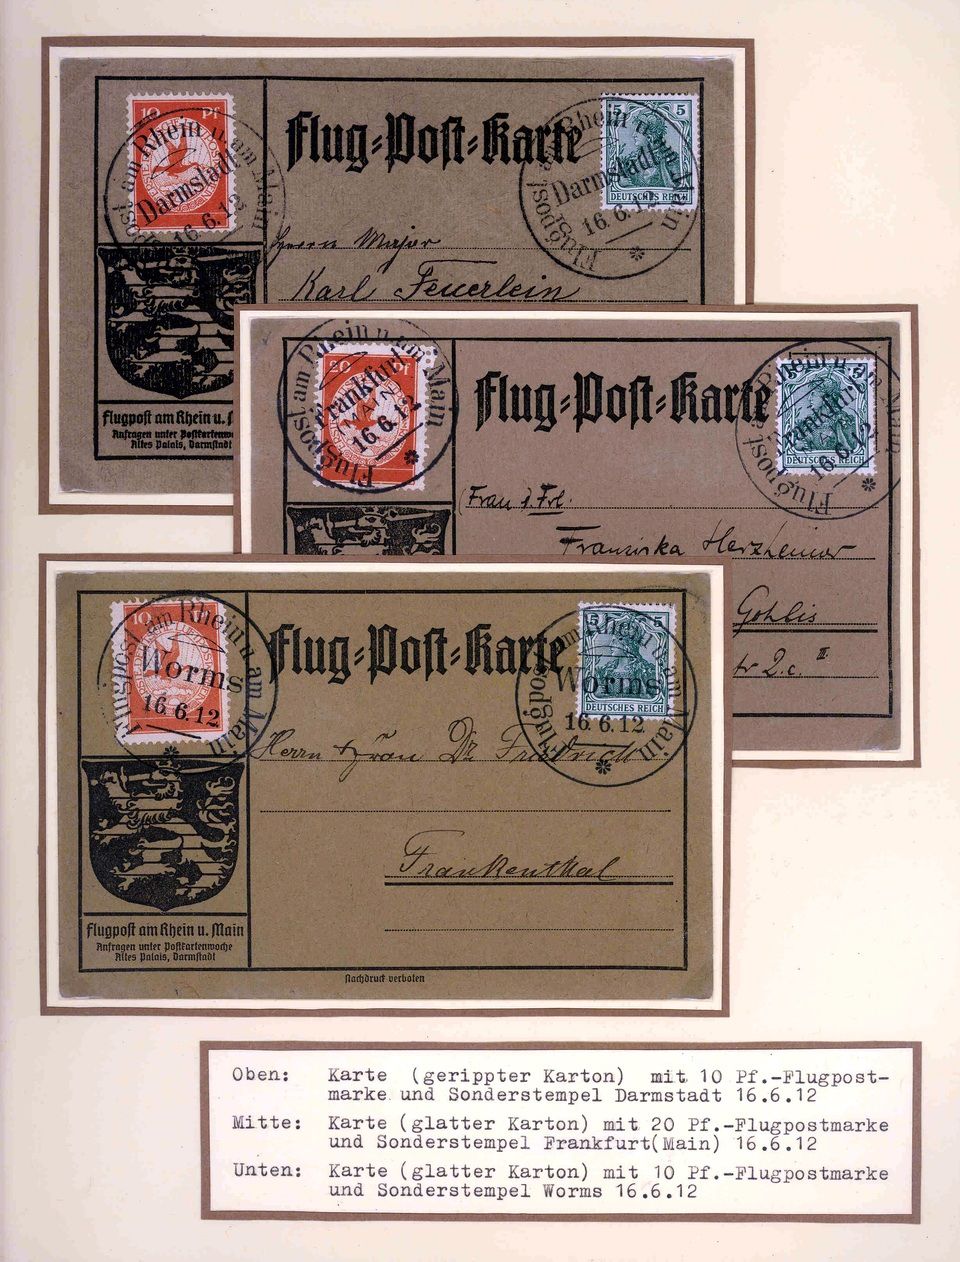 10 Pf
Flugpost am Rhein u. am Main
Darmstadt
16.6.12
Flug-Post-Karte
5 5
DEUTSCHES REICH
Flugpost am Rhein u. am Main
Darmstadt
16.6.12
Herrn Major
Karl Feuerlein
Flugpost am Rhein u.
Anfragen unter
Altes Palais, Darmstadt
20 Pf
Flugpost am Rhein u. am Main
Frankfurt
(MAIN)
16.6.12
Flug-Post-Karte
5
DEUTSCHES REICH
Flugpost am Rhein u. am Main
Frankfurt
16.6.12
Frau
Franziska Herzheimer
Gohlis
2.c. III
10
Flugpost am Rhein u. am Main
Worms
16.6.12
Flug-Post-Karte
5 5
DEUTSCHES REICH
Flugpost am Rhein u. am Main
Worms
16.6.12
Herrn Dr Friedrich
Frankenthal
Flugpost am Rhein u. Main
Anfragen unter Postkartenwoche
Altes Palais, Darmstadt
Nachdruck verboten
Oben: Karte (gerippter Karton) mit 10 Pf.-Flugpost-
marke und Sonderstempel Darmstadt 16.6.12
Mitte: Karte (glatter Karton) mit 20 Pf.-Flugpostmarke
und Sonderstempel Frankfurt(Main) 16.6.12
Unten: Karte (glatter Karton) mit 10 Pf.-Flugpostmarke
und Sonderstempel Worms 16.6.12